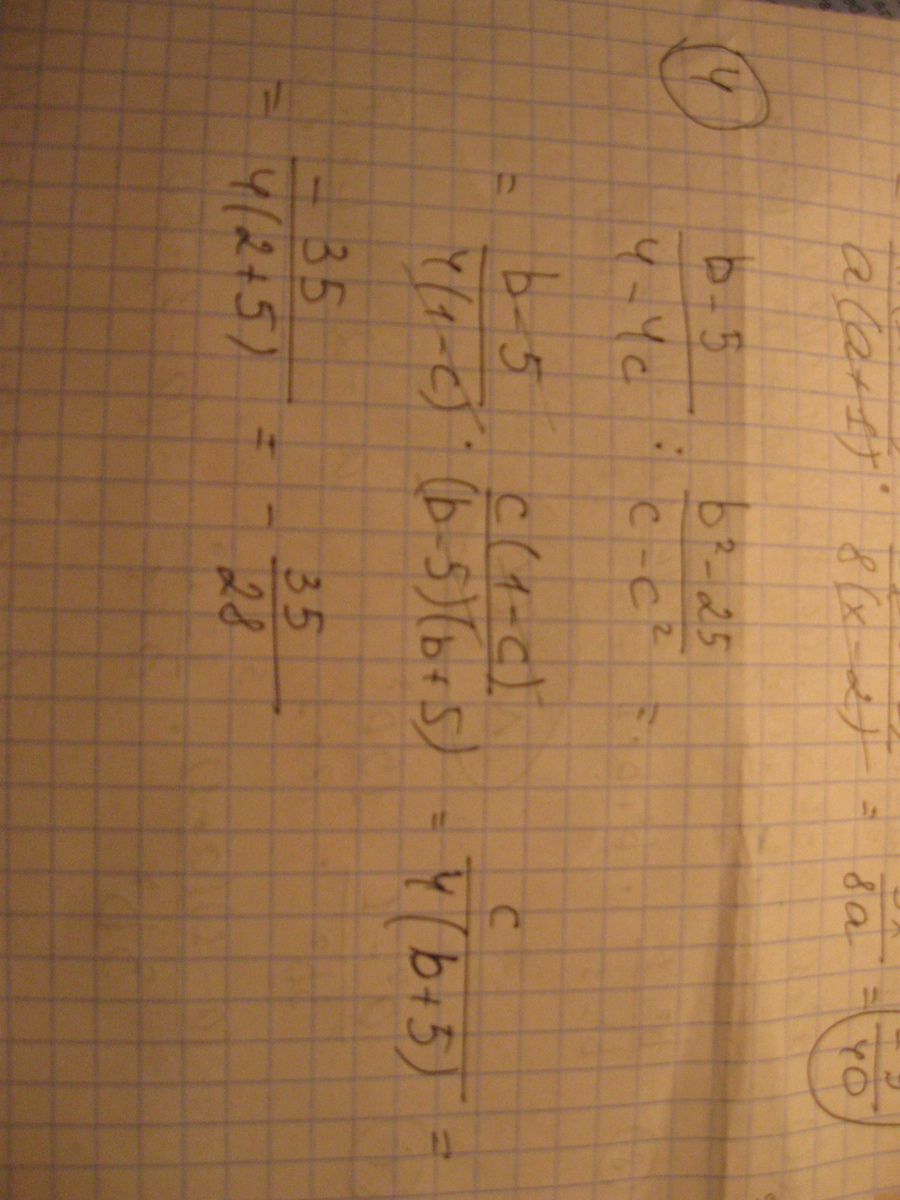 a(a+1) · 8(x-2) = 8a = 40
④
(b-5)/(4-4c) : (b²-25)/(c-c²) =
= (b-5)/(4(1-c)) · (c(1-c))/((b-5)(b+5)) = c/(4(b+5)) =
= -35/(4(2+5)) = -35/28